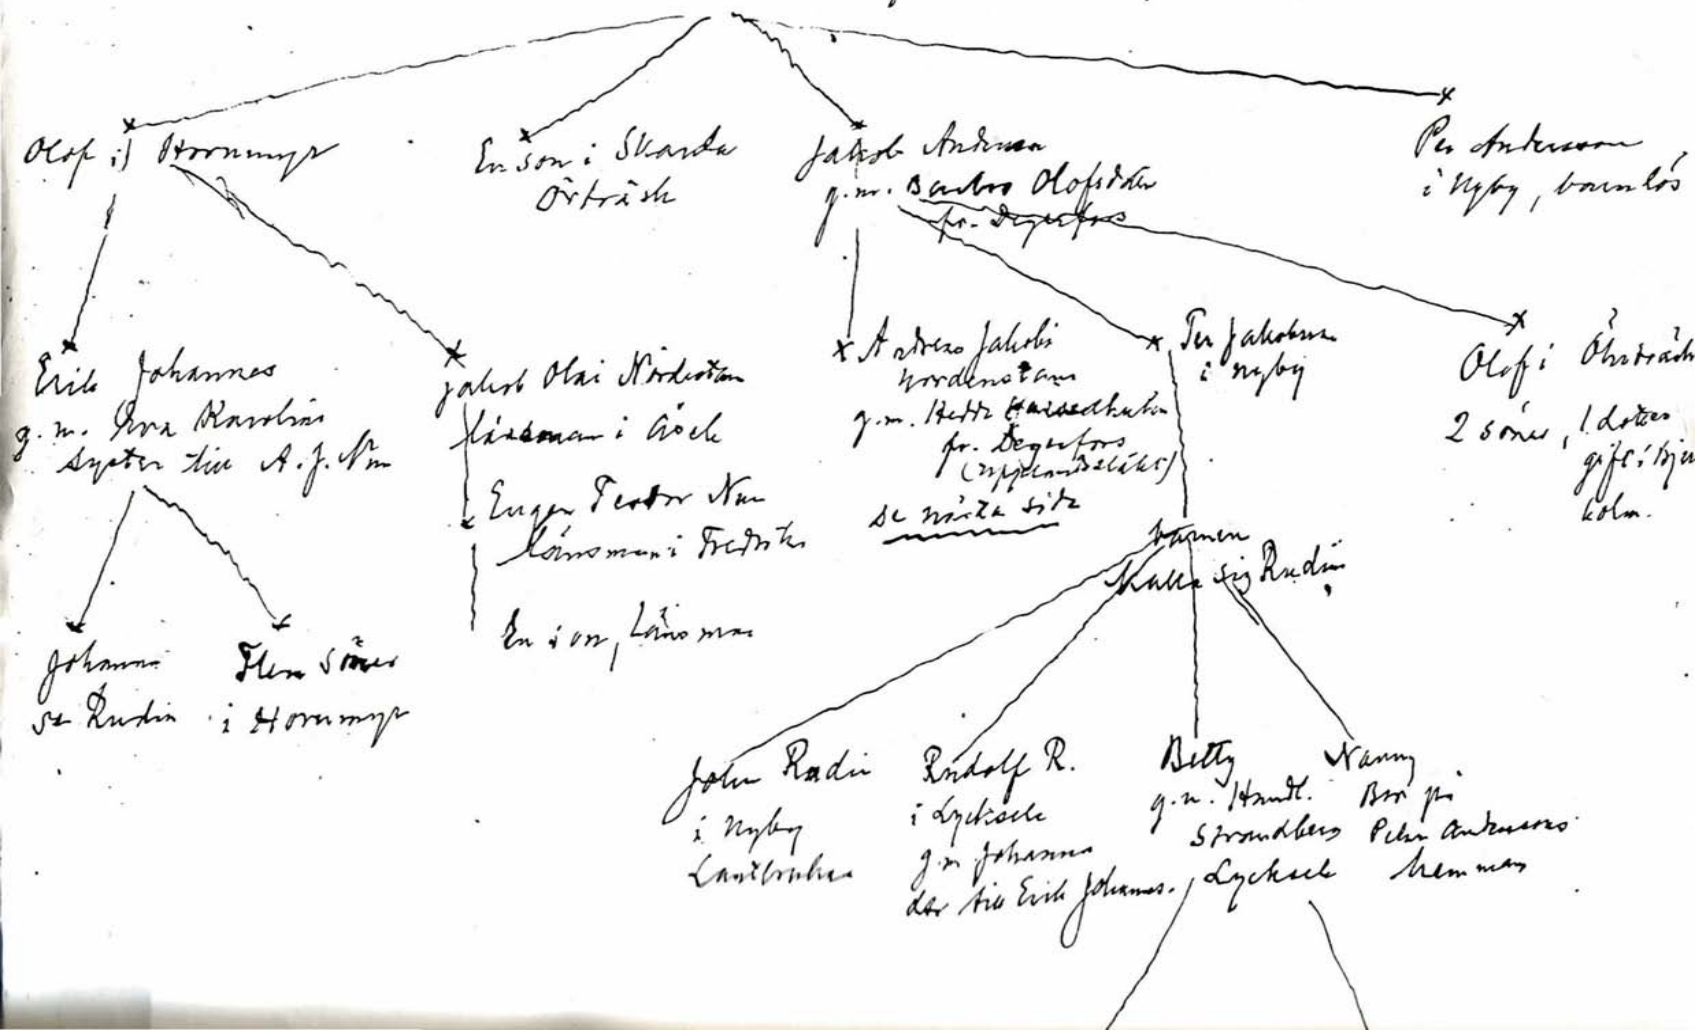 Olof i Hornmyr
En son i Skarda
Örträsk
Jakob Andersson
g.m. Barbro Olofsdotter
fr. Degerfors
Per Andersson
i Nyby, barnlös
Erik Johannes
g.m. Eva Karolina
syster till A.J. Nm
Jakob Olai Nordenstam
länsman i Åsele
Eugen Teodor Nm
länsman i Fredrika
En son, länsman
Andreas Jakobi
Nordenstam
g.m. Hedda
fr. Degerfors
(upplandssläkt)
se nästa sida
Per Jakobsson
i Nyby
Olof i Öhrträsk
2 söner, 1 dotter
gift i Bju
holm.
barnen
kalla sig Rudin
Johanna
se Rudin
Flera söner
i Hornmyr
John Rudin
i Nyby
Lantbrukare
Rudolf R.
i Lycksele
g.m Johanna
dtr till Erik Johannes.
Betty
g.m. Handl.
Strandberg
Lycksele
Nanny
Bor på
Pehr Anderssons
hemman